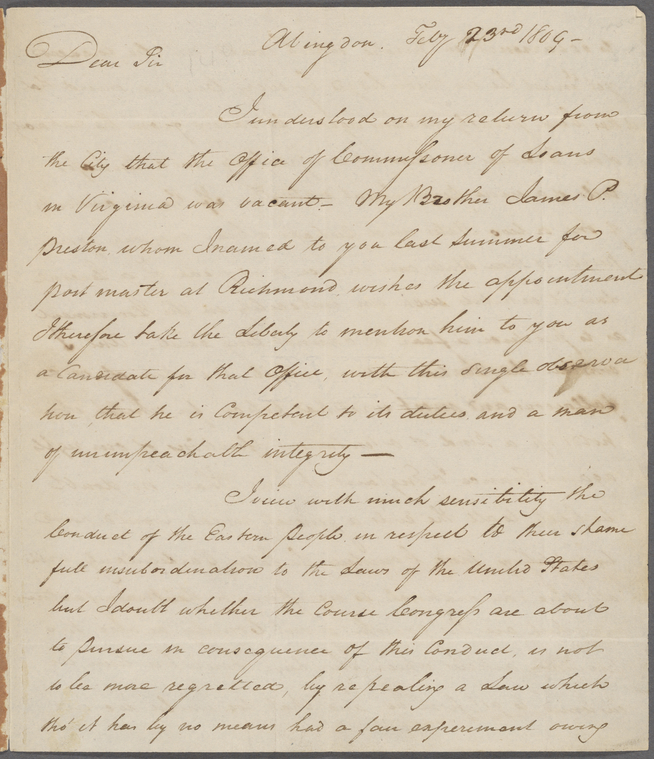 Abingdon. Feby 23rd 1809-
Dear Sir
I understood on my return from
the City that the Office of Commissoner of Loans
in Virginia was vacant- My Brother James P.
Preston whom I named to you last summer for
post master at Richmond wishes the appointment
I therefore take the Liberty to mention him to you as
a Candidate for that Office, with this single observa
tion, that he is Competent to its duties and a man
of unimpeachable integrity—
I view with much sensibility the
Conduct of the Eastern people in respect to their shame
full insubordination to the Laws of the United States
but I doubt whether the Course Congress are about
to pursue in consequence of this Conduct, is not
to be more regretted, by repealing a Law which
tho' it has by no means had a fair experiment owing